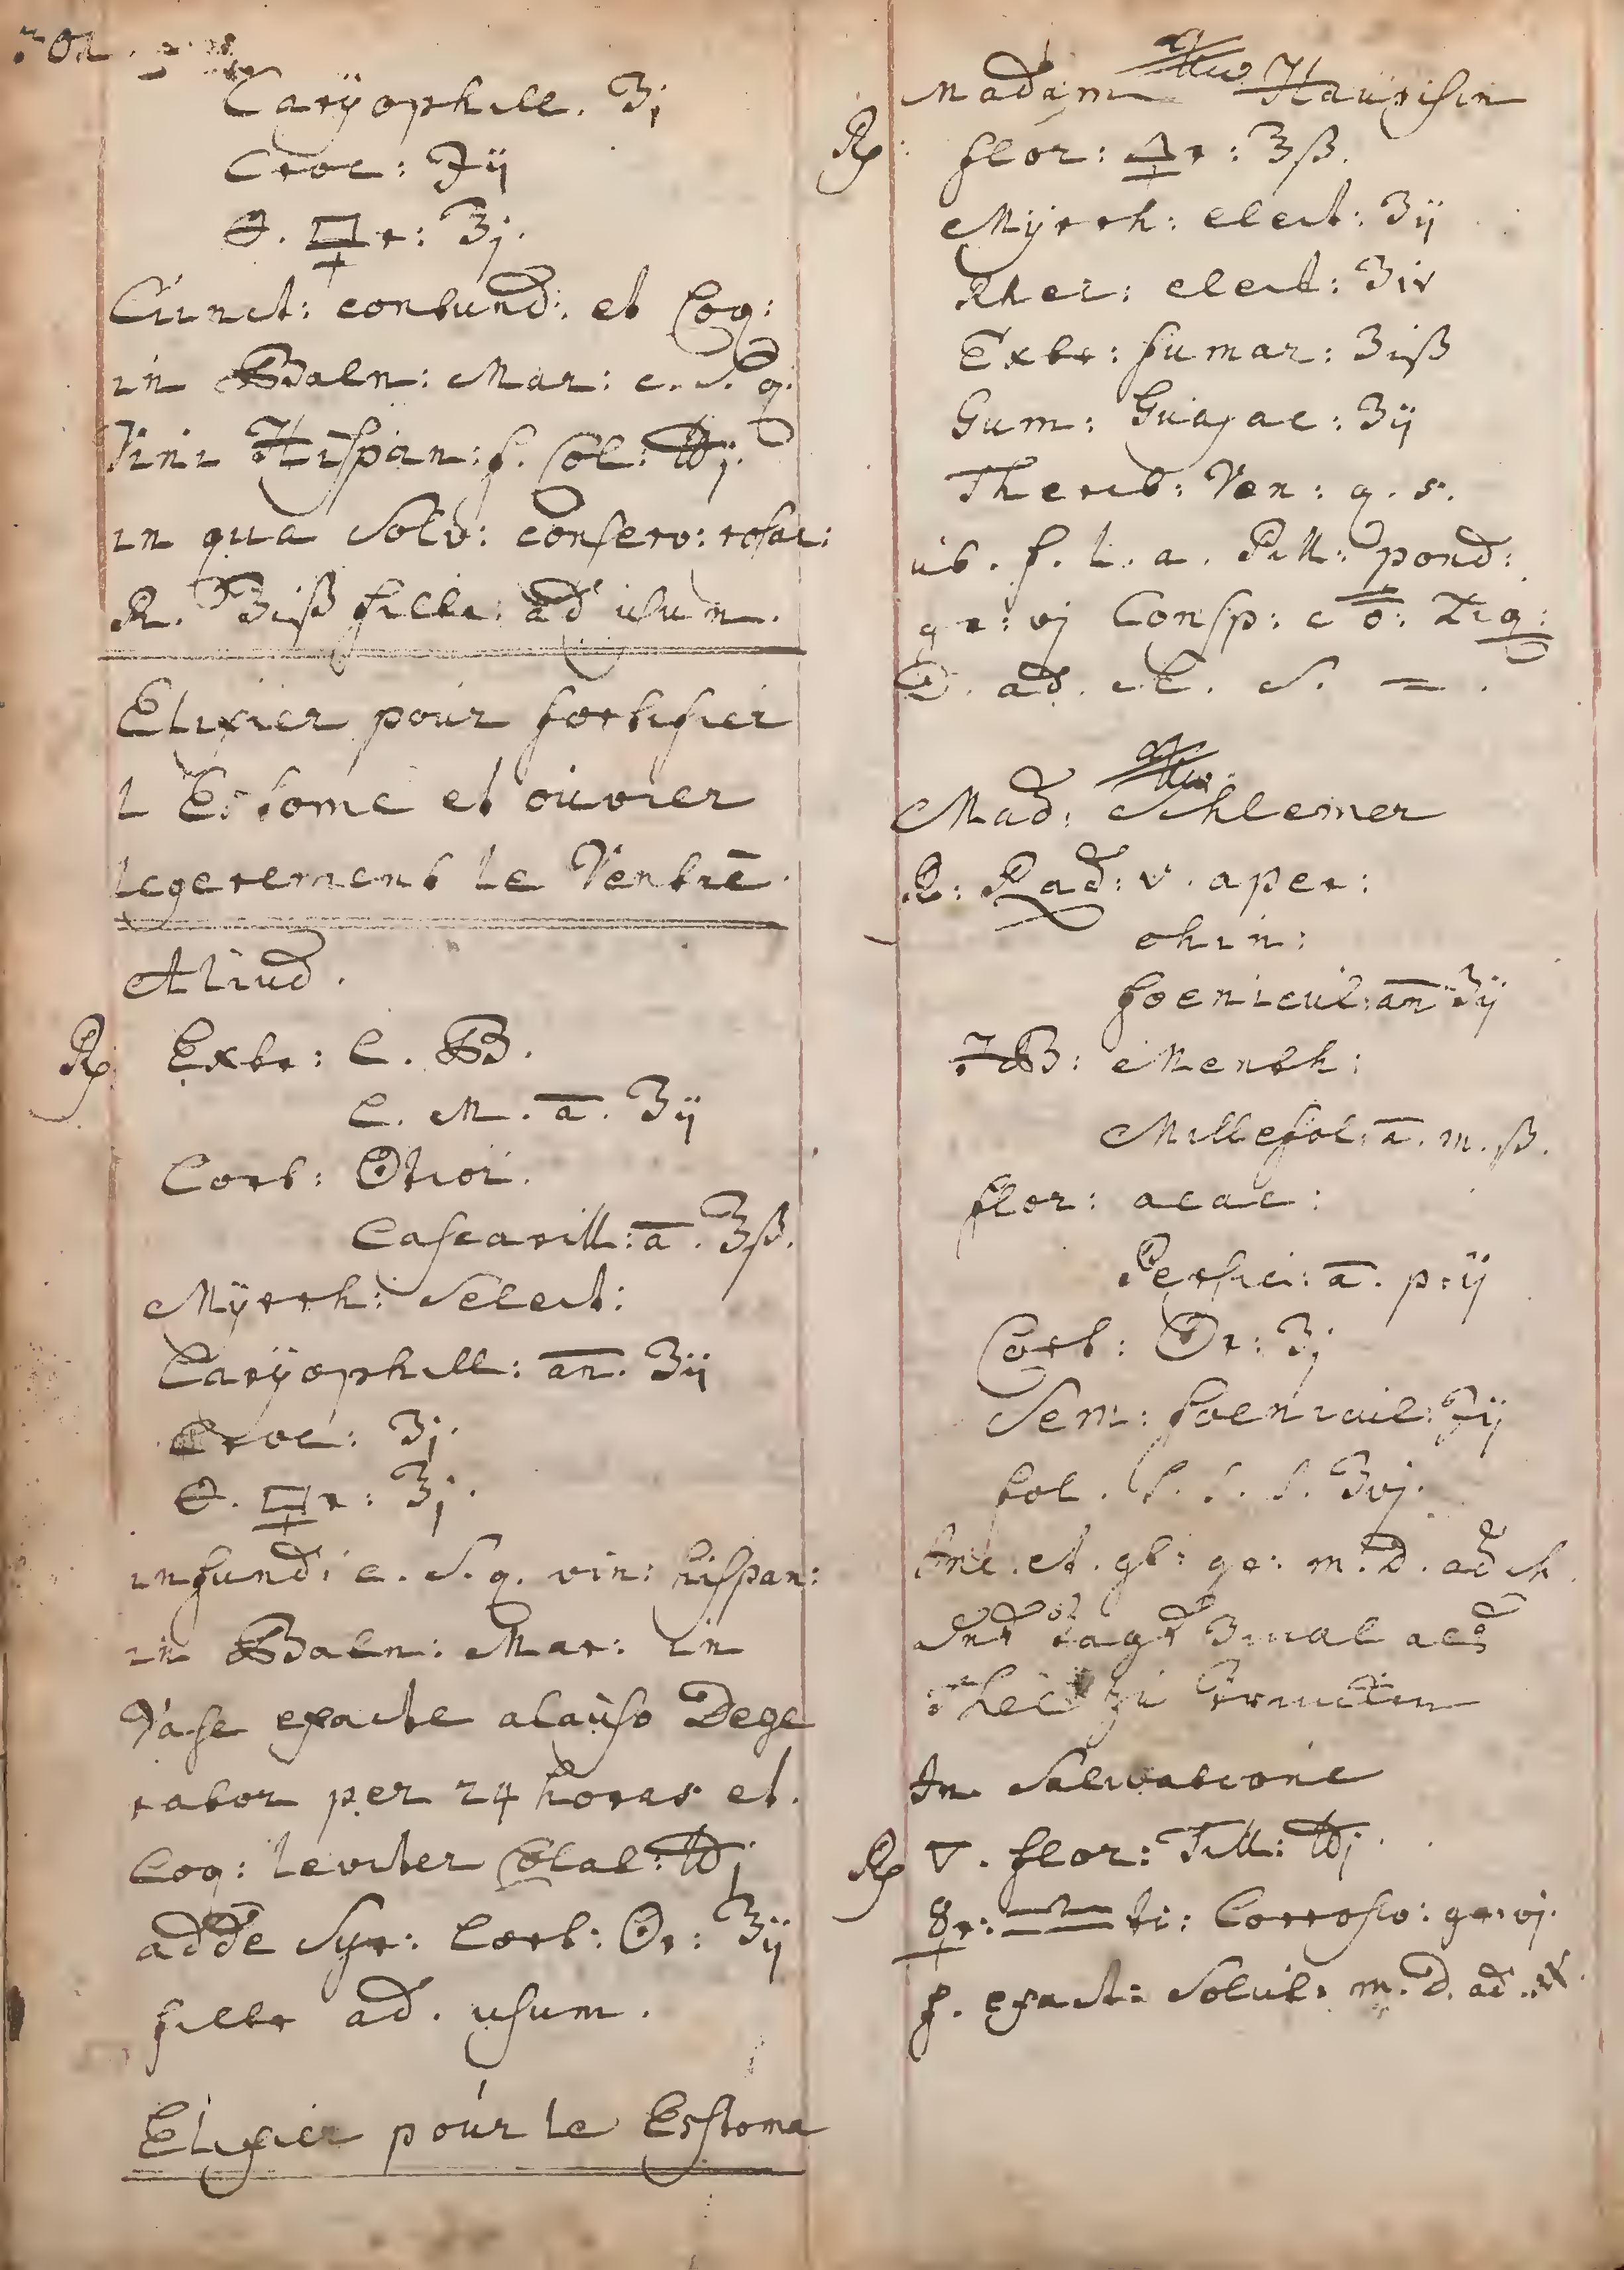 Carÿophill. ʒj
Croc: ℈ij
Cunct: contund: et Coq:
in Baln: Mar: c. s. q.
Vini Hispan: f. Col: ℔j.
in qua Solv: conserv: rosar:
R. ʒiß filtr: ad usum.
Elixier pour fortifier
l Estome et ouvrier
legerement le Ventre.
Aliud.
Rp. Extr: C. B.
C. M. ā. ʒij
Cort: Citior.
Cascarill: ā. ʒß.
Mÿrrh: Select:
Carÿophill: an. ʒij
Croc: ʒj.
infund: c. S. q. vin: hispan:
in Baln: Mar: in
Vase exacte clauso Dege
rator per 24 horas et.
Coq: leviter Colat: ℔j
adde Syr: Cort: Or: ʒij
filtr ad. usum.
Elixier pour le Estoma
Madam Haurisin
Rp: flor: 🜍r: ʒß.
Mÿrrh: elect: ʒij
Rhei: elect: ʒiv
Extr: fumar: ʒiß
Gum: Guajac: ʒij
Thereb: Ven: q. s.
ut. f. l. a. Pill: pond:
gr: vj Consp: c o: Liq:
D. ad. S.
Mad: Schlemer
R: Rad: v. aper:
chin:
foenicul: an ʒij
Menth:
Millefol: ā. m. ß.
flor: acac:
Persici: ā. p: ij
Cort: Or: ʒj
Sem: foenicul: ℈ij
fol. S. S. S. ʒvj.
Inc. et. gr: m. D. ad
3 mal als
Thee zu
In Salivatione
Rp ▽. flor: Till: ℔j.
☿r: Corrosiv: gr: vj.
f. exact: Solut: m. D. ad